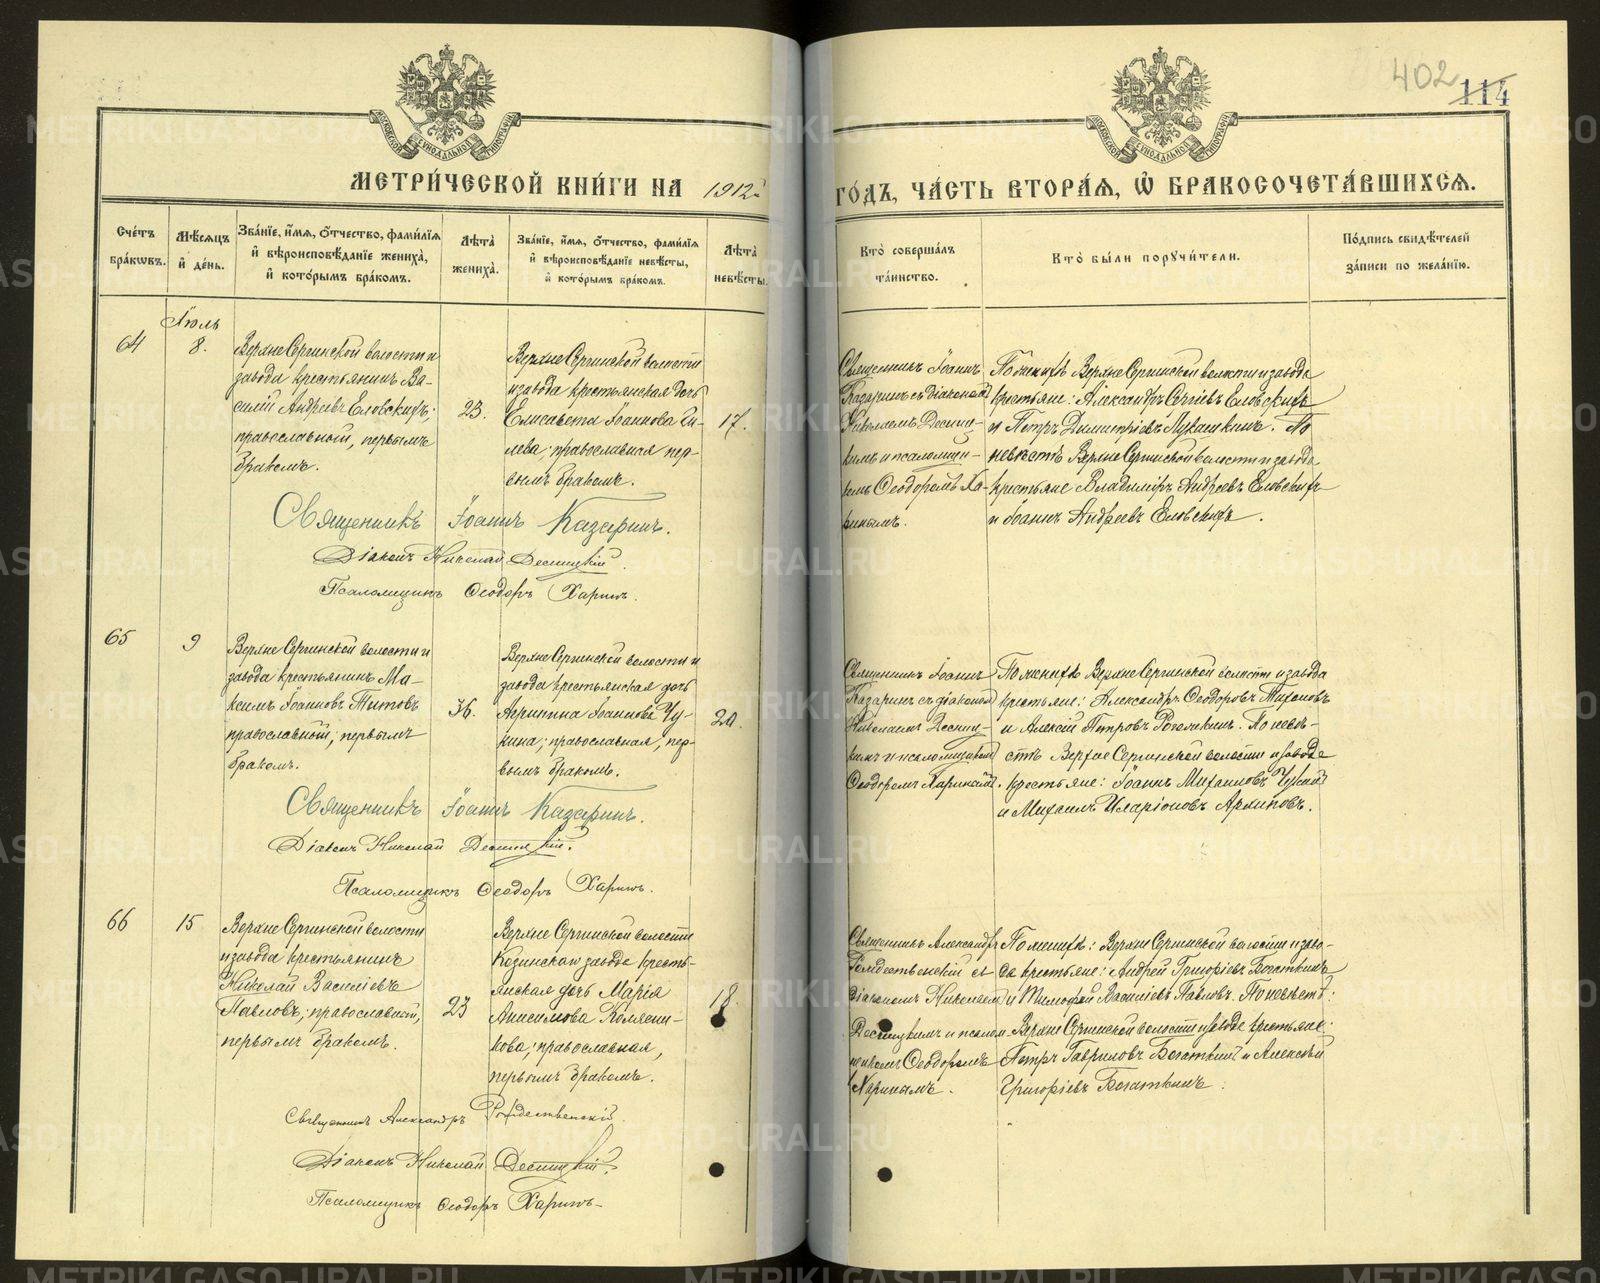 402
114
МЕТРИ́ЧЕСКОЙ КНИ́ГИ НА 1912й
ГО́ДЪ, ЧА́СТЬ ВТОРА́Я, Ѽ БРАКОСОЧЕТА́ВШИХСЯ.
Сче́тъ бра́кѡвъ.
Мѣ́сяцъ и҆ де́нь.
Зва́нїе, и҆́мя, ѻ҆́тчество, фами́лїя
и҆ вѣроисповѣ́данїе жениха̀,
и҆ кото́рымъ бра́комъ.
Лѣ́та жениха̀.
Зва́нїе, и҆́мя, ѻ҆́тчество, фами́лїя
и҆ вѣроисповѣ́данїе невѣ́сты,
и҆ кото́рымъ бра́комъ.
Лѣ́та невѣ́сты.
Кто̀ соверша́лъ
та́инство.
Кто̀ бы́ли поручи́тели.
По́дпись свидѣ́телей
за́писи по жела́нїю.
64
Іюль
8.
Верхне Сергинской волости и
завода крестьянинъ Ва-
силій Андреевъ Еловскихъ;
православный, первымъ
бракомъ.
23.
Верхне Сергинской волости
и завода крестьянская дочь
Елисавета Іоаннова Ги-
лева; православная пер-
вымъ бракомъ.
17.
Священникъ Іоаннъ
Казаринъ съ діакономъ
Николаемъ Десниц-
кимъ и псаломщи-
комъ Ѳеодоромъ Ха-
ринымъ.
По женихѣ Верхне Сергинской волости и завода
крестьяне: Александръ Сергіевъ Еловскихъ
и Петръ Димитріевъ Лукашкинъ. По
невѣстѣ Верхне Сергинской волости и завода
крестьяне Владиміръ Андреевъ Еловскихъ
и Іоаннъ Андреевъ Еловскихъ.
Священникъ Іоаннъ Казаринъ.
Діаконъ Николай Десницкій.
Псаломщикъ Ѳеодоръ Харинъ.
65
9
Верхне Сергинской волости и
завода крестьянинъ Ма-
ксимъ Іоанновъ Титовъ
православный; первымъ
бракомъ.
36.
Верхне Сергинской волости и
завода крестьянская дочь
Агриппина Іоаннова Чу-
кина; православная, пер-
вымъ бракомъ.
20.
Священникъ Іоаннъ
Казаринъ съ діакономъ
Николаемъ Десниц-
кимъ и псаломщикомъ
Ѳеодоромъ Харинымъ.
По женихѣ Верхне Сергинской волости и завода
крестьяне: Александръ Ѳеодоровъ Тихоновъ
и Алексій Петровъ. По невѣ-
стѣ Верхне Сергинской волости и завода
крестьяне: Іоаннъ Михаиловъ
и Михаилъ Иларіоновъ Архиповъ.
Священникъ Іоаннъ Казаринъ.
Діаконъ Николай Десницкій.
Псаломщикъ Ѳеодоръ Харинъ.
66
15
Верхне Сергинской волости
и завода крестьянинъ
Николай Василіевъ
Павловъ; православный,
первымъ бракомъ.
23
Верхне Сергинской волости
Козинскаго завода кресть-
янская дочь Марія
Анисимова Колясни-
кова; православная,
первымъ бракомъ.
18.
Священникъ Александръ
Рождественскій съ
діакономъ Николаемъ
Десницкимъ и псалом-
щикомъ Ѳеодоромъ
Харинымъ.
По женихѣ: Верхне Сергинской волости и заво-
да крестьяне: Андрей Григоріевъ Богаткинъ
и Тимофей Василіевъ Павловъ. По невѣстѣ:
Верхне Сергинской волости и завода крестьяне:
Петръ Гавриловъ Богаткинъ и Алексѣй
Григоріевъ Богаткинъ.
Священникъ Александръ Рождественскій.
Діаконъ Николай Десницкій.
Псаломщикъ Ѳеодоръ Харинъ
METRIKI.GASO-URAL.RU